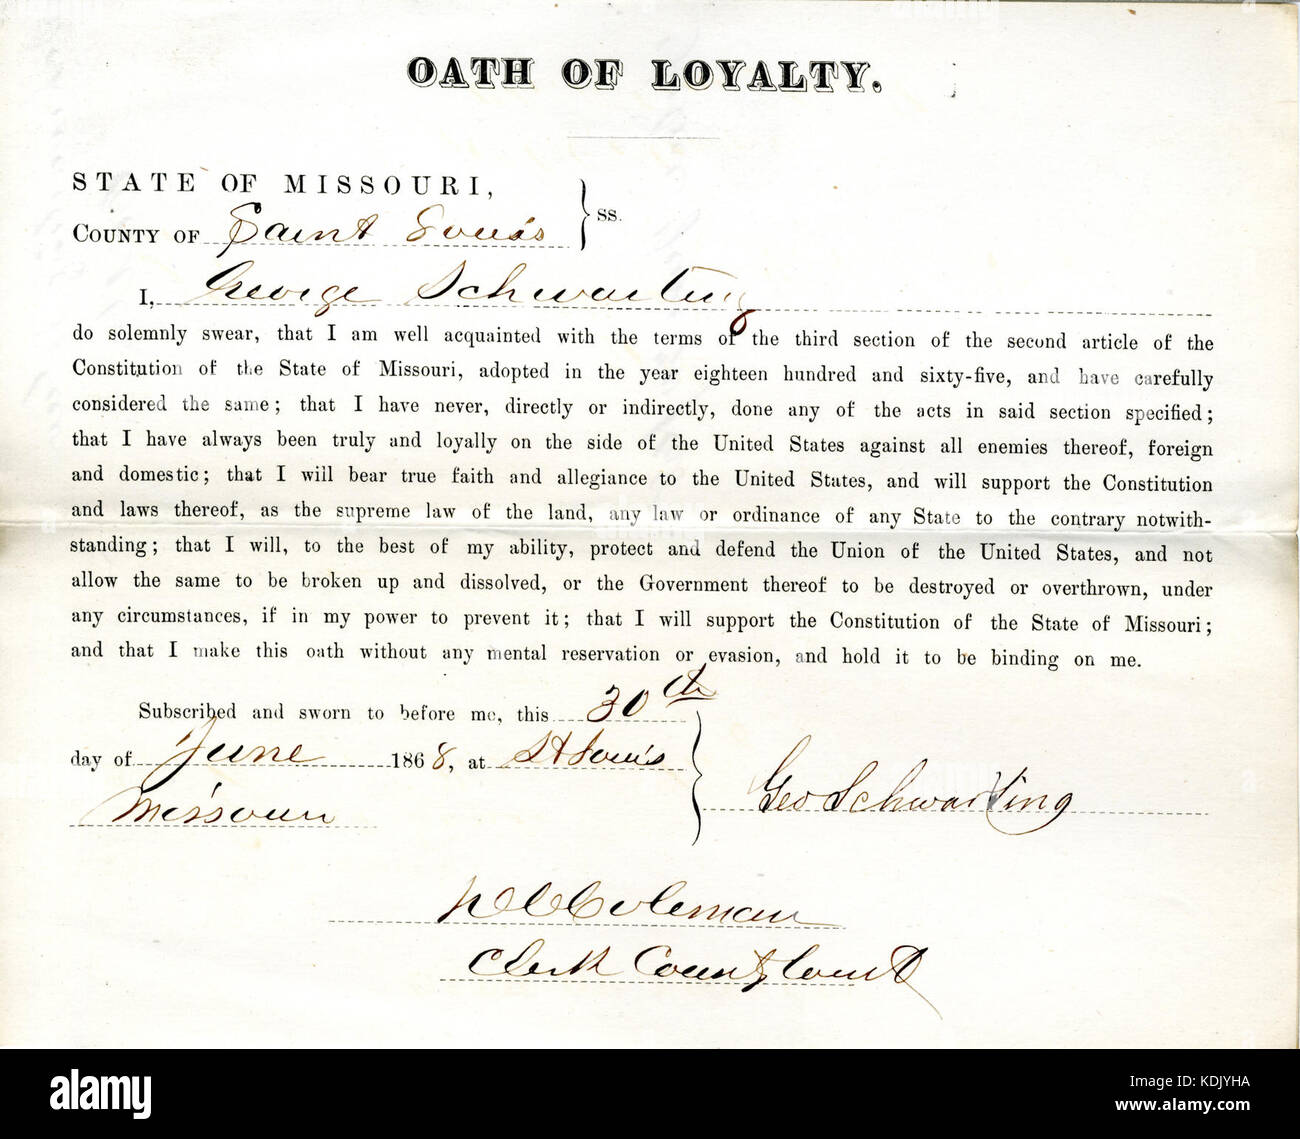 OATH OF LOYALTY.
STATE OF MISSOURI,
COUNTY OF Saint Louis
ss.
I, George Schwarting
do solemnly swear, that I am well acquainted with the terms of the third section of the second article of the
Constitution of the State of Missouri, adopted in the year eighteen hundred and sixty-five, and have carefully
considered the same; that I have never, directly or indirectly, done any of the acts in said section specified;
that I have always been truly and loyally on the side of the United States against all enemies thereof, foreign
and domestic; that I will bear true faith and allegiance to the United States, and will support the Constitution
and laws thereof, as the supreme law of the land, any law or ordinance of any State to the contrary notwith-
standing; that I will, to the best of my ability, protect and defend the Union of the United States, and not
allow the same to be broken up and dissolved, or the Government thereof to be destroyed or overthrown, under
any circumstances, if in my power to prevent it; that I will support the Constitution of the State of Missouri;
and that I make this oath without any mental reservation or evasion, and hold it to be binding on me.
Subscribed and sworn to before me, this 30th
day of June 1868, at St Louis
Missouri
Geo Schwarting
Coleman
Clerk County Court
alamy
Image ID: KDJYHA
www.alamy.com